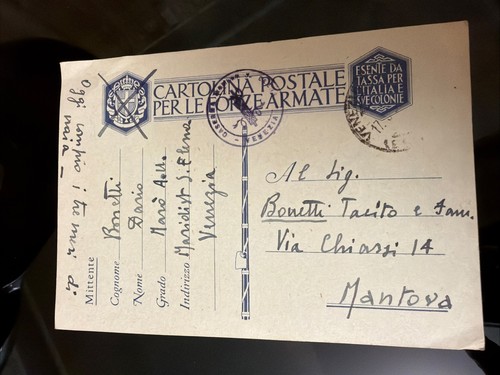 CARTOLINA POSTALE
PER LE FORZE ARMATE
ESENTE DA
TASSA PER
L'ITALIA E
SVE COLONIE
VENEZIA
Al Sig.
Bonetti Tacito e Fam.
Via Chiassi 14
Mantova
Mittente
Cognome Bonetti
Nome Dario
Grado Marò
Indirizzo Maridist S. Elena
Venezia
Oggi i tre di
naia -